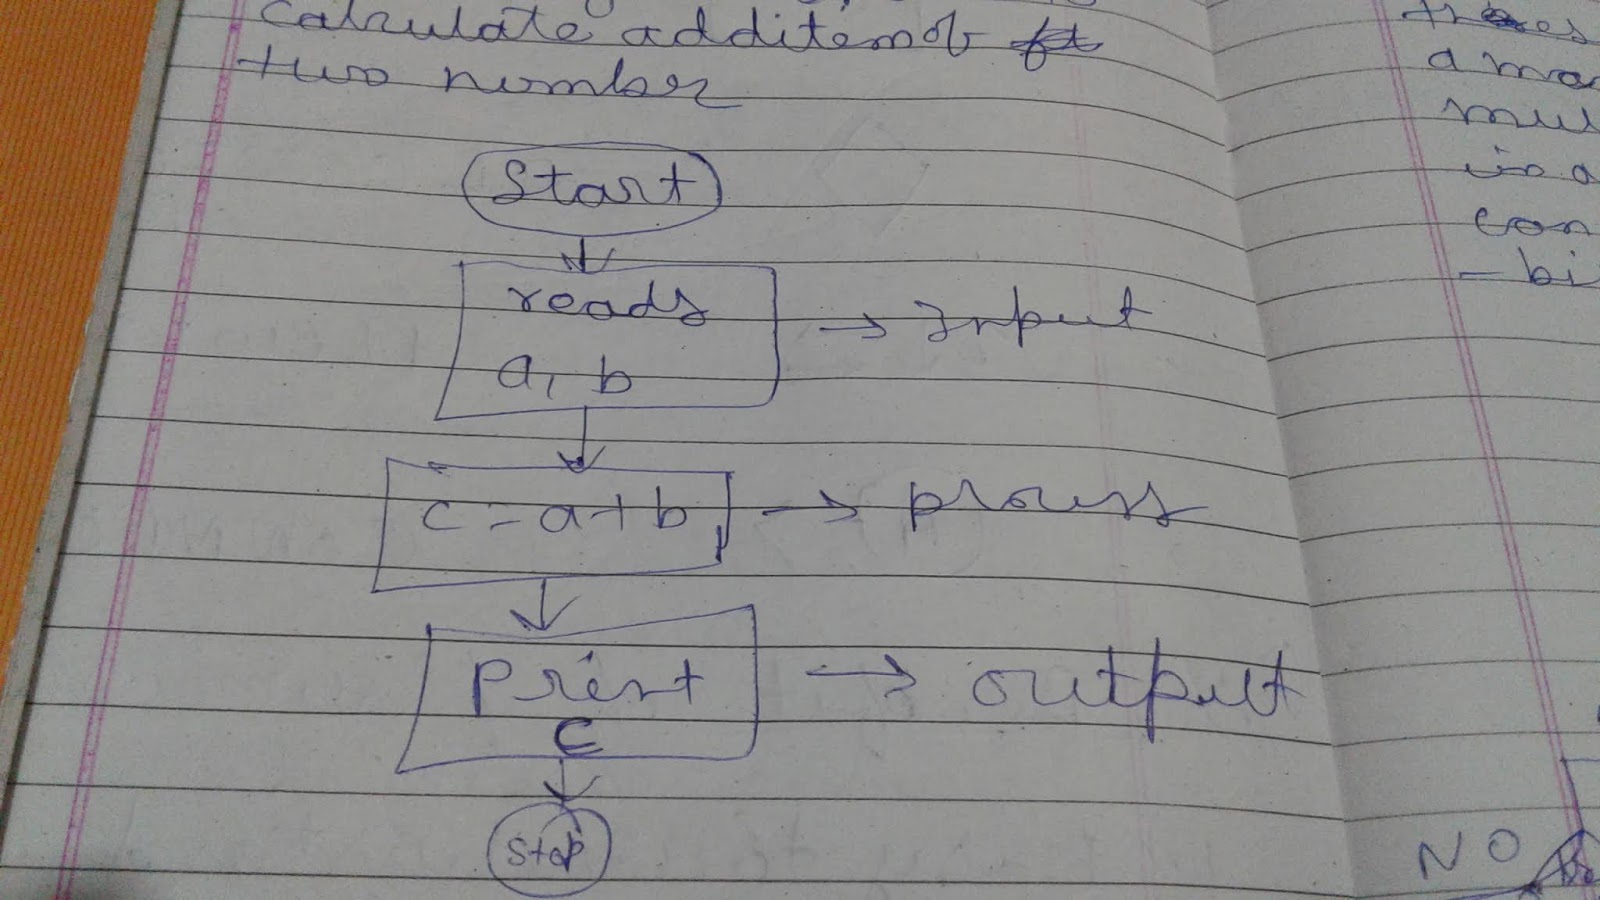 calculate addition of
two number
Start
reads → Input
a, b
c = a + b → process
print → output
c
Stop
a ma
mul
is a
con
- bi
NO